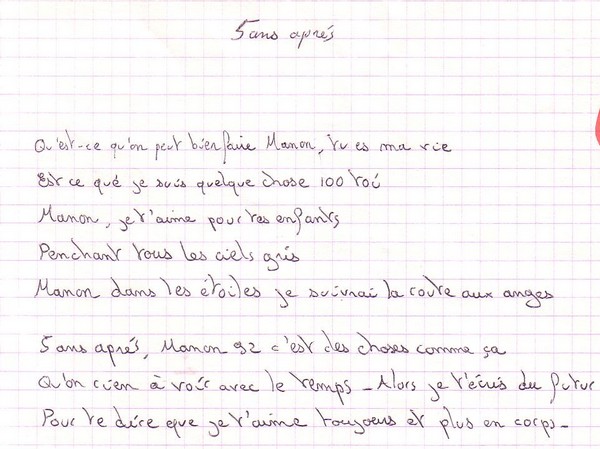 5 ans aprés
Qu'est-ce qu'on peut bien faire Manon, tu es ma vie
Est ce qué je suis quelque chose 100 toi
Manon, je t'aime pour tes enfants
Penchant tous les ciels gris
Manon dans les étoiles je suivrai la route aux anges
5 ans aprés, Manon 92 c'est des choses comme ça
Qu'on rien à voir avec le temps - Alors je t'écris du futur
Pour te dire que je t'aime toujours et plus en corps -